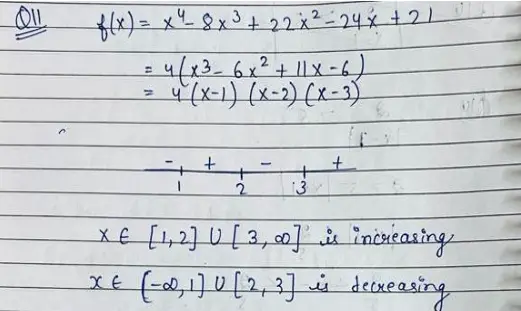 Q11 f(x) = x⁴ - 8x³ + 22x² - 24x + 21
= 4(x³ - 6x² + 11x - 6)
= 4 (x-1) (x-2) (x-3)
- + - +
1 2 3
x ∈ [1, 2] ∪ [3, ∞] is increasing
x ∈ (-∞, 1] ∪ [2, 3] is decreasing